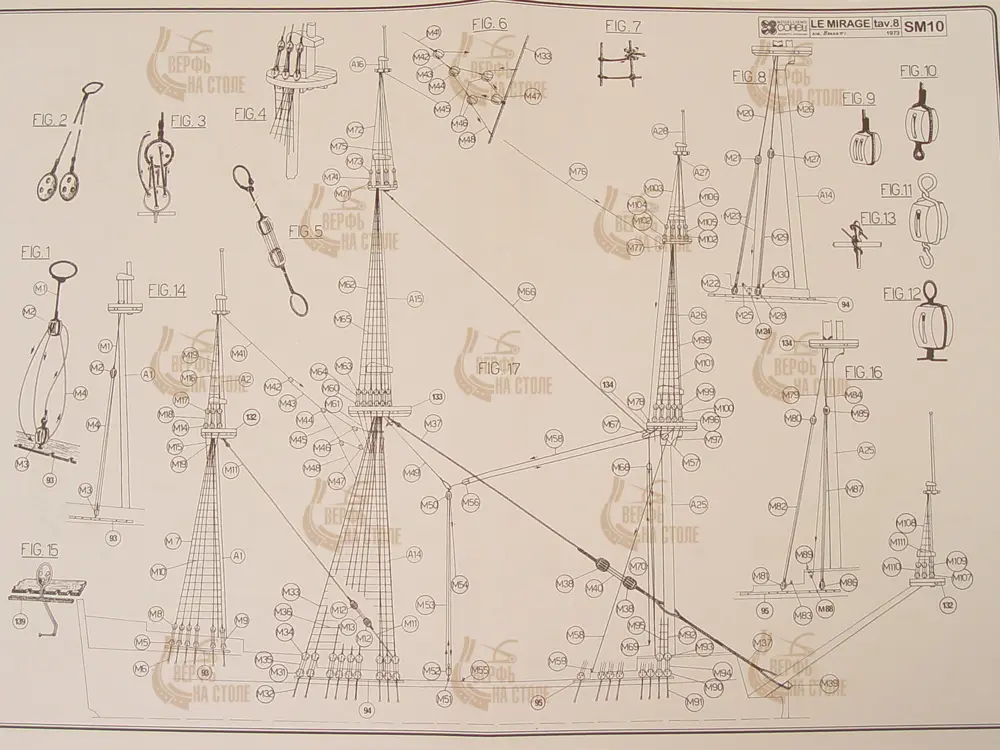 COREL
LE MIRAGE
tav.8
SM10
1973
FIG. 6
FIG. 7
FIG. 8
FIG. 10
FIG. 9
FIG. 2
FIG. 3
FIG. 4
FIG. 11
FIG. 13
FIG. 5
FIG. 1
FIG. 14
FIG. 12
FIG. 17
FIG. 16
FIG. 15
ВЕРФЬ
НА СТОЛЕ
ВЕРФЬ
НА СТОЛЕ
ВЕРФЬ
НА СТОЛЕ
ВЕРФЬ
НА СТОЛЕ
ВЕРФЬ
НА СТОЛЕ
ВЕРФЬ
НА СТОЛЕ
ВЕРФЬ
НА СТОЛЕ
ВЕРФЬ
НА СТОЛЕ
ВЕРФЬ
НА СТОЛЕ
M41
M42
M43
M44
M45
M46
M48
M33
M47
A16
M72
M75
M73
M74
M71
M62
A15
M65
M66
M76
A28
A27
M103
M104
M106
M105
M102
M77
A26
M98
M101
M99
M100
M96
M97
M57
M78
M67
134
M20
M26
M21
M27
A14
M23
M29
M22
M30
M25
M24
M28
94
M1
M2
M4
M3
93
M1
M2
A1
M4
M3
93
M19
M41
M16
A2
M17
M18
M14
132
M15
M19
M11
M42
M43
M44
M45
M46
M48
M47
M64
M63
M60
M61
133
M37
M49
M50
M56
M58
M68
A25
M7
M10
A1
M8
M9
M5
M6
93
M33
M36
M34
M35
M31
M32
M12
M13
M12
M11
A14
M53
M54
M52
M55
M51
94
M38
M40
M70
M38
M95
M69
M58
M59
M92
M93
M94
M90
M91
95
M37
M39
134
M79
M84
M80
M85
A25
M82
M87
M89
M81
M86
M83
M88
95
M108
M111
M110
M109
M107
132
139